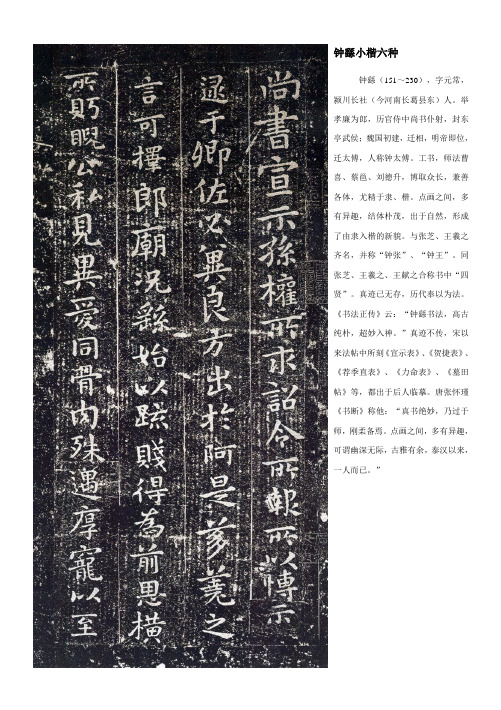 钟繇小楷六种
钟繇（151～230），字元常，
颍川长社（今河南长葛县东）人。举
孝廉为郎，历官侍中尚书仆射，封东
亭武侯；魏国初建，迁相，明帝即位，
迁太傅，人称钟太傅。工书，师法曹
喜、蔡邕、刘德升，博取众长，兼善
各体，尤精于隶、楷。点画之间，多
有异趣，结体朴茂，出于自然，形成
了由隶入楷的新貌。与张芝、王羲之
齐名，并称“钟张”、“钟王”。同
张芝、王羲之、王献之合称书中“四
贤”。真迹已无存，历代奉以为法。
《书法正传》云：“钟繇书法，高古
纯朴，超妙入神。”真迹不传，宋以
来法帖中所刻《宣示表》、《贺捷表》、
《荐季直表》、《力命表》、《墓田
帖》等，都出于后人临摹。唐张怀瓘
《书断》称他：“真书绝妙，乃过于
师，刚柔备焉。点画之间，多有异趣，
可谓幽深无际，古雅有余，泰汉以来，
一人而已。”
尚書宣示孫權所求詔令所報所以博示
逮于卿佐必冀良方出於阿是芻蕘之
言可擇郎廟況繇始以疏賤得為前恩橫
所眄睨公私見異愛同骨肉殊遇厚寵以至